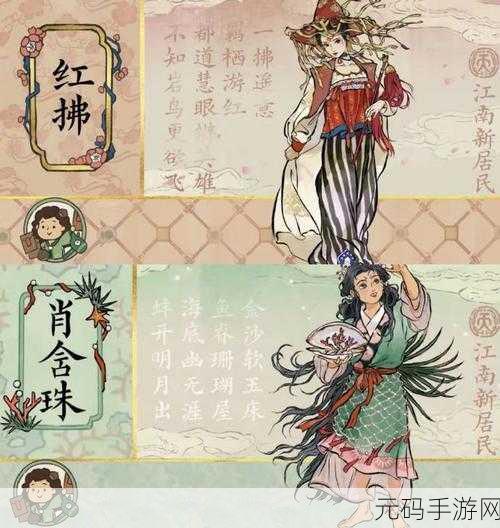 红拂
一拂遥
羁栖游红
都道慧眼
雄
不知岩鸟更欲飞
江南新居民
肖含珠
金沙软玉床
鱼脊珊瑚屋
海底幽无涯
蚌开明月出
江南新居民
元码手游网